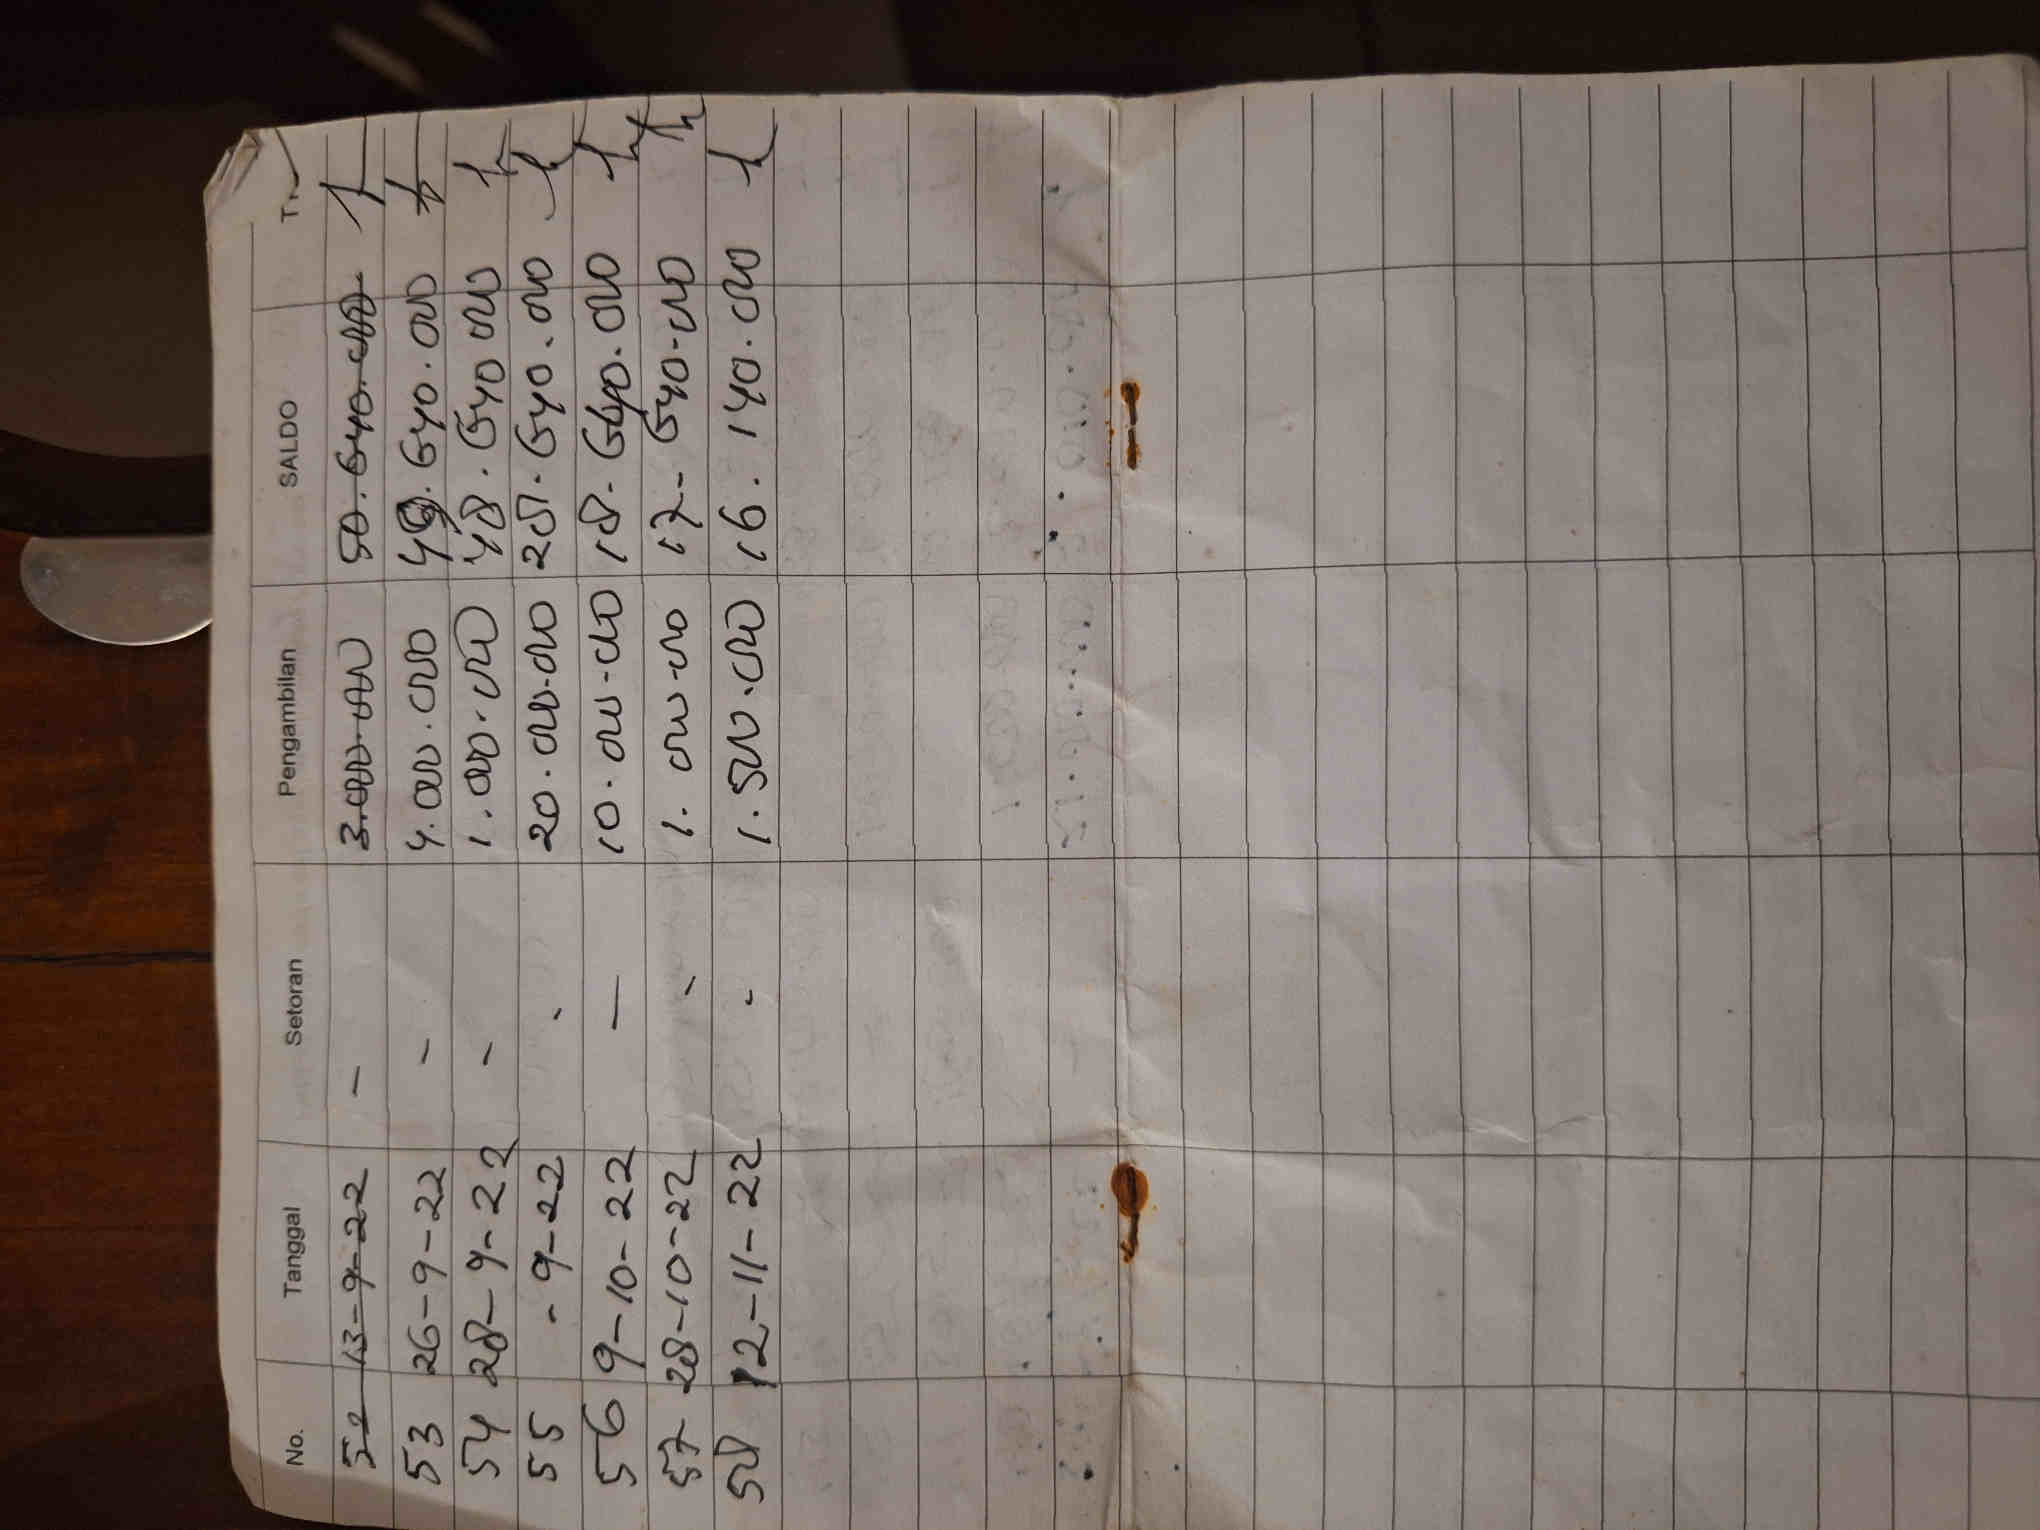 No. Tanggal Setoran Pengambilan SALDO
52 13-9-22 - 3.000.000 50.640.000
53 26-9-22 - 4.000.000 49.640.000
54 28-9-22 - 1.000.000 48.640.000
55 -9-22 - 20.000.000 28.640.000
56 9-10-22 - 10.000.000 18.640.000
57 28-10-22 - 1.000.000 17-640.000
58 12-11-22 - 1.500.000 16.140.000